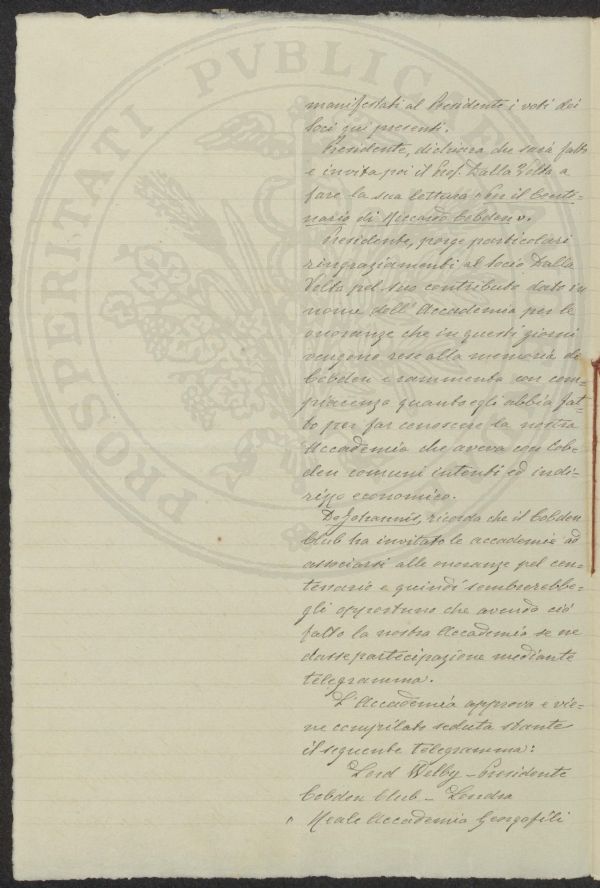 PROSPERITATI PVBLICAE
manifestati al Presidente i voti dei
Soci qui presenti.
Presidente, dichiara che sarà fatto
e invita poi il Prof. Dalla Volta a
fare la sua lettura "Per il Cente-
nario di Riccardo Cobden".
Presidente, porge particolari
ringraziamenti al Socio Dalla
Volta pel suo contributo dato in
nome dell'Accademia per le
onoranze che in questi giorni
vengono rese alla memoria di
Cobden e rammenta con com=
piacenza quanto egli abbia fat=
to per far conoscere la nostra
Accademia che aveva con Cob=
den comuni intenti ed indi=
rizzo economico.
De Johannis, ricorda che il Cobden
Club ha invitato le accademie ad
associarsi alle onoranze pel cen=
tenario e quindi sembrerebbe=
gli opportuno che avendo ciò
fatto la nostra Accademia se ne
dasse partecipazione mediante
telegramma.
L'Accademia approva e vie=
ne compilato seduta stante
il seguente telegramma:
Lord Welby - Presidente
Cobden Club - Londra
" Reale Accademia Georgofili